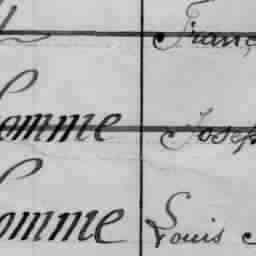 Franç
omme Josep
omme Louis